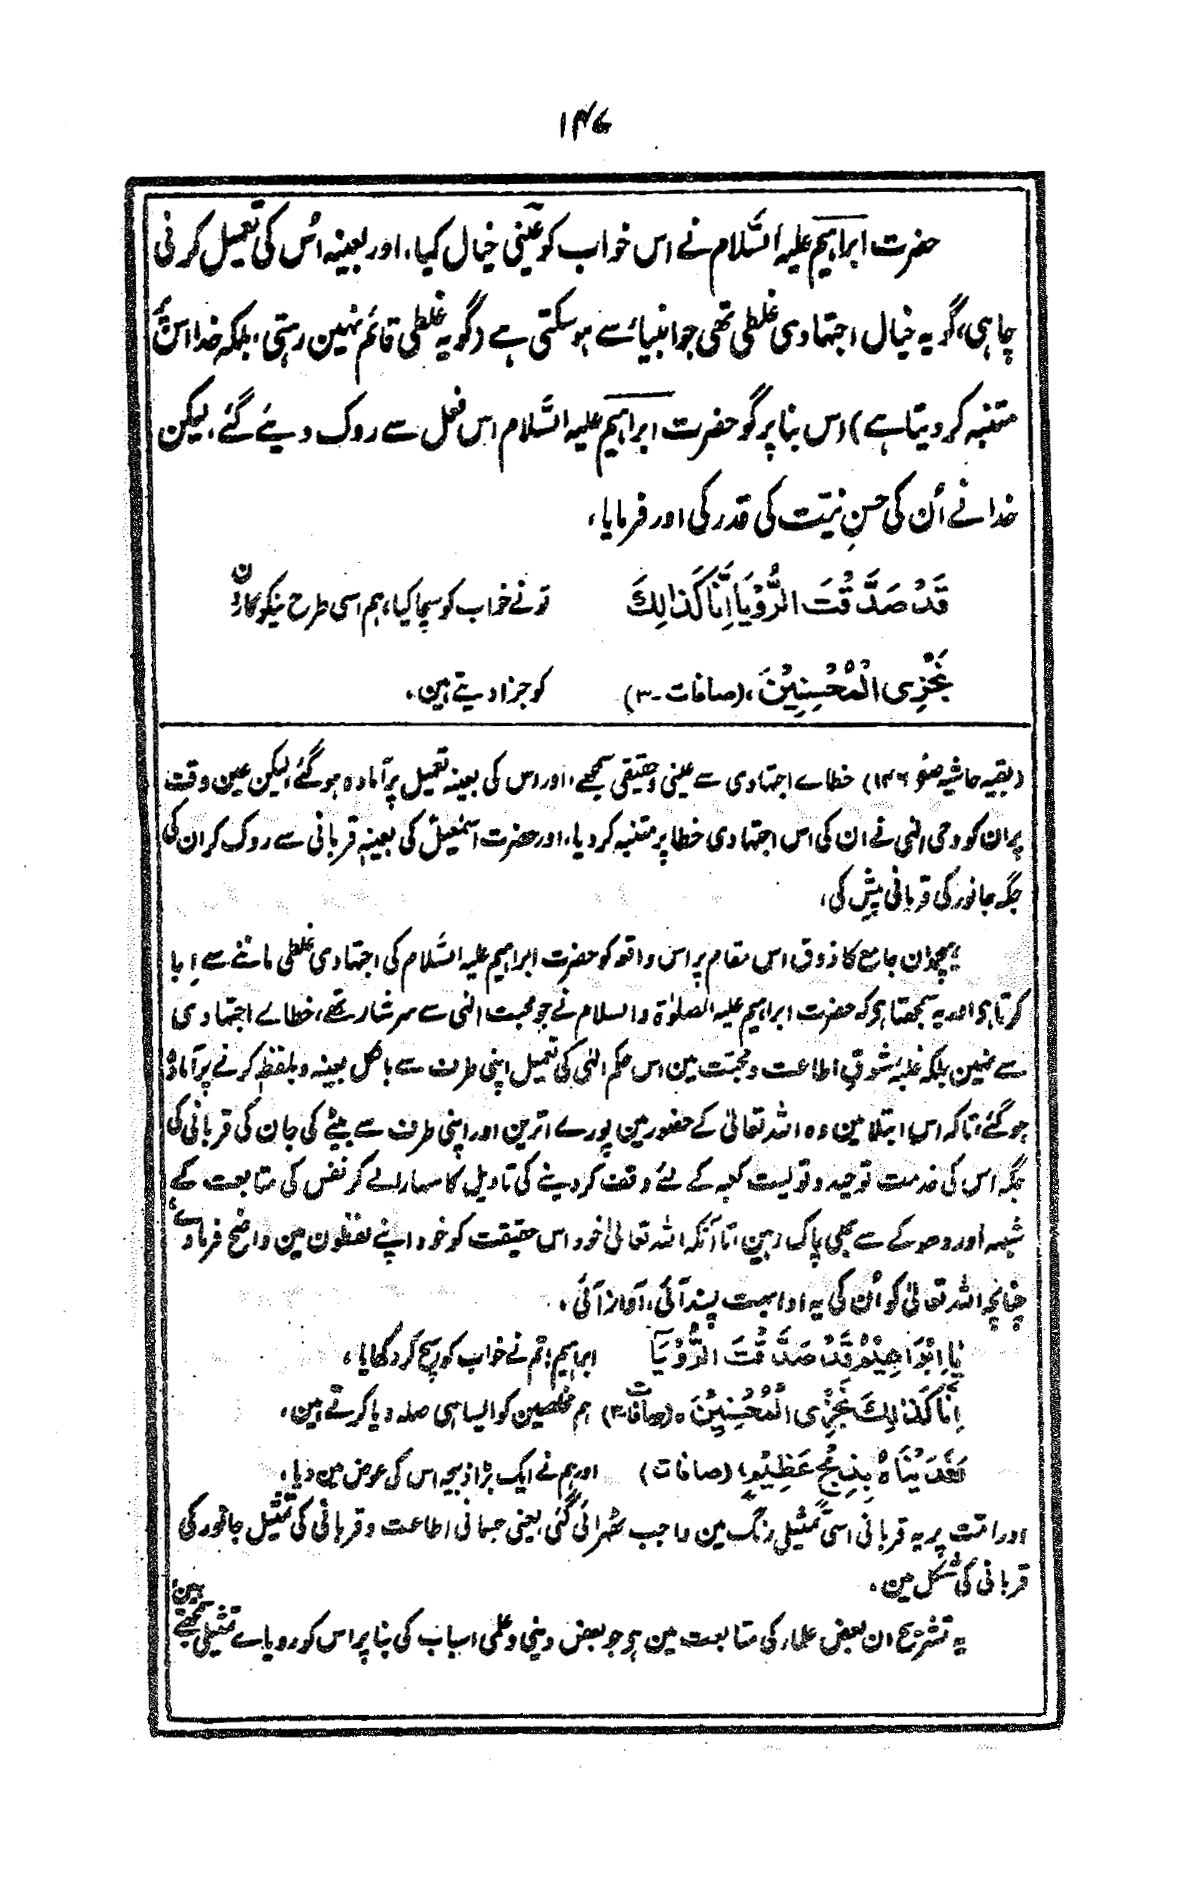 ۱۴۷
حضرت ابراہیم علیہ السَّلام نے اس خواب کو عینی خیال کیا، اور بعینہ اُس کی تعمیل کرنی
چاہی، گو یہ خیال اجتہادی غلطی تھی جو انبیاءؑ سے ہو سکتی ہے (گو یہ غلطی قائم نہین رہتی، بلکہ خدا اس پر
متنبہ کر دیتا ہے) اس بنا پر گو حضرت ابراہیم علیہ السَّلام اس فعل سے روک دیئے گئے، لیکن
خدا نے اُن کی حسنِ نیّت کی قدر کی اور فرمایا،
قَدْ صَدَّقْتَ الرُّؤْيَا اِنَّا كَذَالِكَ تو نے خواب کو سچا کیا، ہم اسی طرح نیکوکارون
نَجْزِی الْمُحْسِنِيْنَ، (صافات - ۳) کو جزا دیتے ہین،
(بقیہ حاشیہ صفحہ ۱۴۶) خطاے اجتہادی سے عینی و حقیقی سمجھے، اور اس کی بعینہ تعمیل پر آمادہ ہو گئے، لیکن عین وقت
پر ان کو وحی الٰہی نے ان کی اس اجتہادی خطا پر متنبہ کر دیا، اور حضرت اسمٰعیلؑ کی بعینہٖ قربانی سے روک کر ان کی
جگہ جانور کی قربانی پیش کی،
ہیچمدان جامع کا ذوق اس مقام پر اس واقعہ کو حضرت ابراہیم علیہ السَّلام کی اجتہادی غلطی ماننے سے اِبا
کرتا ہو اور یہ سمجھتا ہو کہ حضرت ابراہیم علیہ الصلوٰۃ والسلام نے جو محبت الٰہی سے سرشار تھے، خطاے اجتہادی
سے نہین بلکہ غلبۂ شوقِ اطاعت و محبّت مین اس حکم الٰہی کی تعمیل اپنی طرف سے بالکل بعینہ و بلفظہٖ کرنے پر آمادہ
ہو گئے، تاکہ اس ابتلا مین وہ اللہ تعالیٰ کے حضور مین پورے اترین اور اپنی طرف سے بیٹے کی جان کی قربانی کی
جگہ اس کی خدمت توحید و تولیت کعبہ کے لئے وقف کر دینے کی تاویل کا سہارا لے کر نفس کی متابعت کے
شبہہ اور دھوکے سے بھی پاک رہین، تا آنکہ اللہ تعالیٰ خود اس حقیقت کو خود اپنے لفظون مین واضح فرما دے،
چنانچہ اللہ تعالیٰ کو اُن کی یہ ادا بہت پسند آئی، آواز آئی،
يَا اِبْرَاهِيْمُ قَدْ صَدَّقْتَ الرُّؤْيَآ ابراہیم! تم نے خواب کو سچ کر دکھایا،
اِنَّا كَذٰلِكَ نَجْزِی الْمُحْسِنِيْنَ ہ (صافات-۳) ہم مخلصین کو ایسا ہی صلہ دیا کرتے ہین،
فَفَدَيْنَاهُ بِذِبْحٍ عَظِيْمٍ، (صافات) اور ہم نے ایک بڑا ذبیحہ اس کی عوض مین دیا،
اور امّت پر یہ قربانی اسی تمثیلی رنگ مین واجب ٹھرائی گئی، یعنی جسمانی اطاعت و قربانی کی تمثیل جانور کی
قربانی کی شکل مین،
یہ تشریح ان بعض علماء کی متابعت مین ہو جو بعض دینی و علمی اسباب کی بنا پر اس کو رویاے تمثیلی سمجھتے ہین،